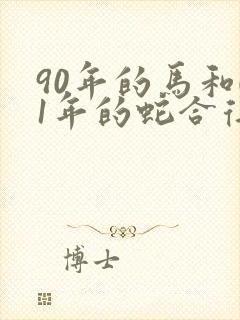 90年的馬和
1年的蛇合
博士